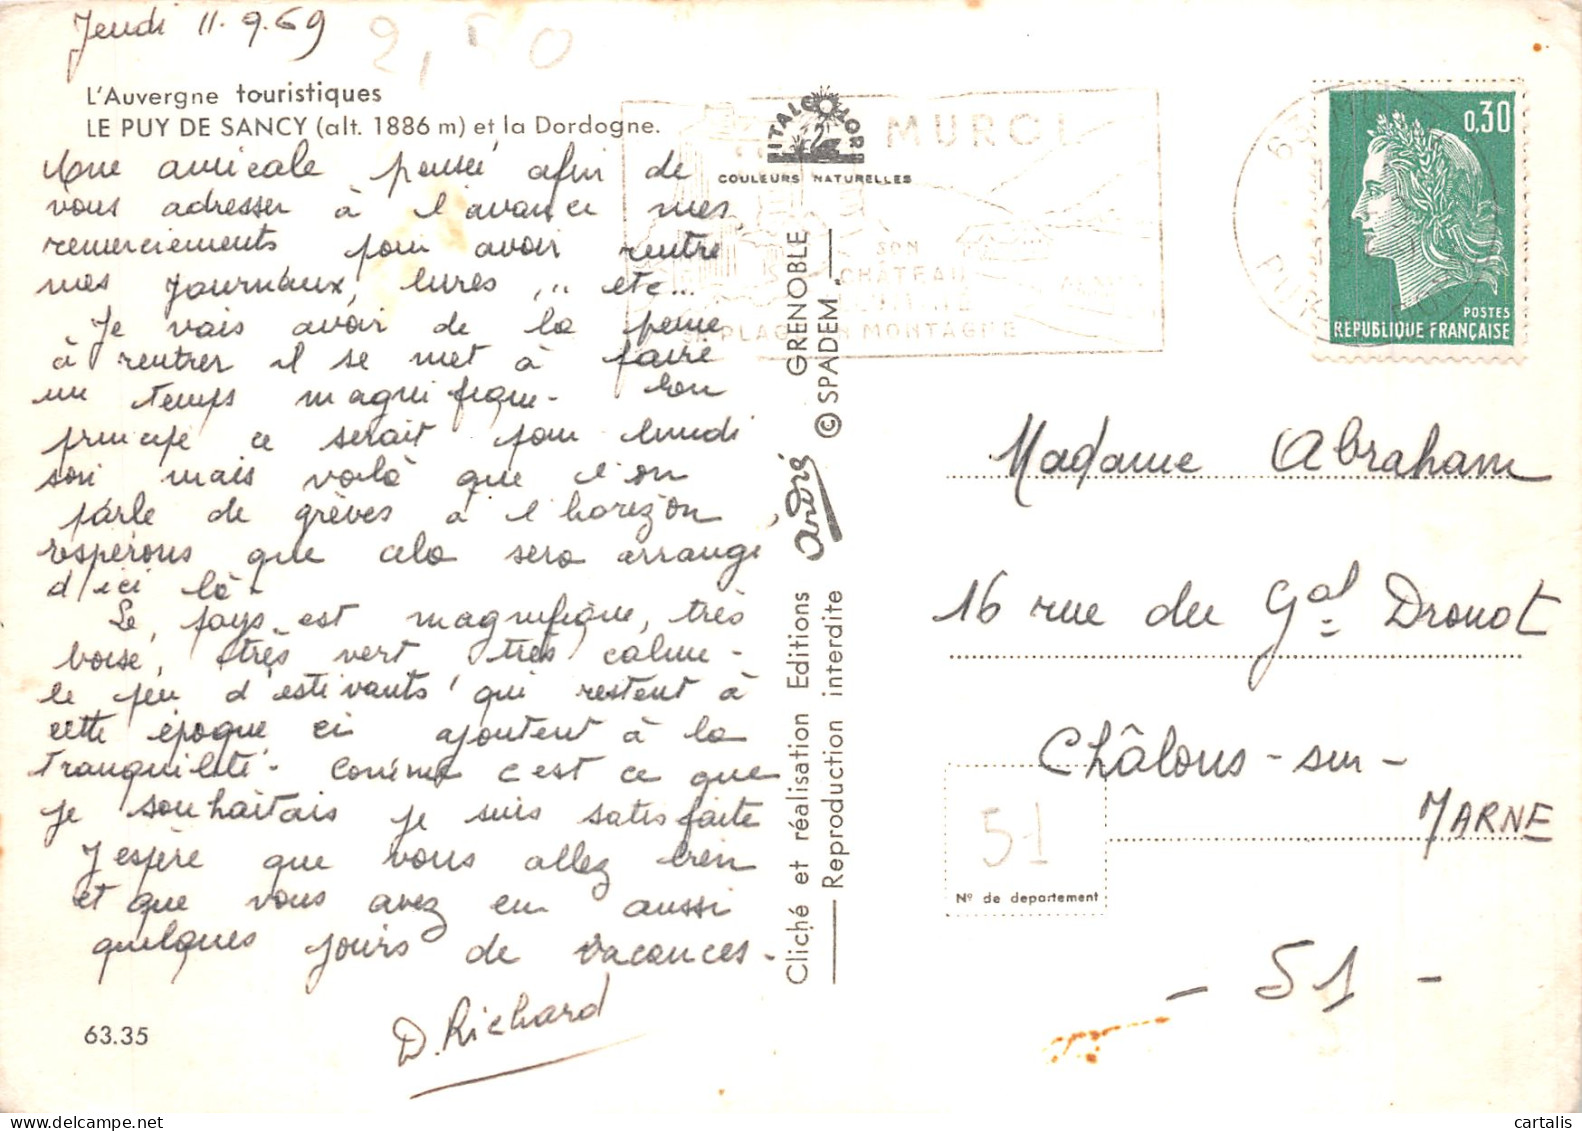 Jeudi 11.9.69
2,50
L'Auvergne touristiques
LE PUY DE SANCY (alt. 1886 m) et la Dordogne.
Une amicale pensée afin de
vous adresser à l'avance mes
remerciements pour avoir rentré
mes journaux, livres ,.. etc...
Je vais avoir de la peine
à rentrer il se met à faire
un temps magnifique. En
principe ce serait pour lundi
soir mais voilà que l'on
parle de grèves à l'horizon,
espérons que cela sera arrangé
d'ici là.
Le pays est magnifique, très
boisé, très vert très calme.
le peu d'estivants qui restent à
cette époque ci ajoutent à la
tranquilité. Comme c'est ce que
je souhaitais je suis satisfaite
J'espère que vous allez bien
et que vous avez eu aussi
quelques jours de vacances.
D. Richard
63.35
ITALCOLOR
COULEURS NATURELLES
MUROL
SON
CHÂTEAU
PLAGE EN MONTAGNE
Cliché et réalisation Editions André GRENOBLE
Reproduction interdite © SPADEM
0,30
POSTES
REPUBLIQUE FRANÇAISE
Madame Abraham
16 rue du Gal Drouot
Châlons-sur-
MARNE
51
Nº de departement
- 51 -
cartalis